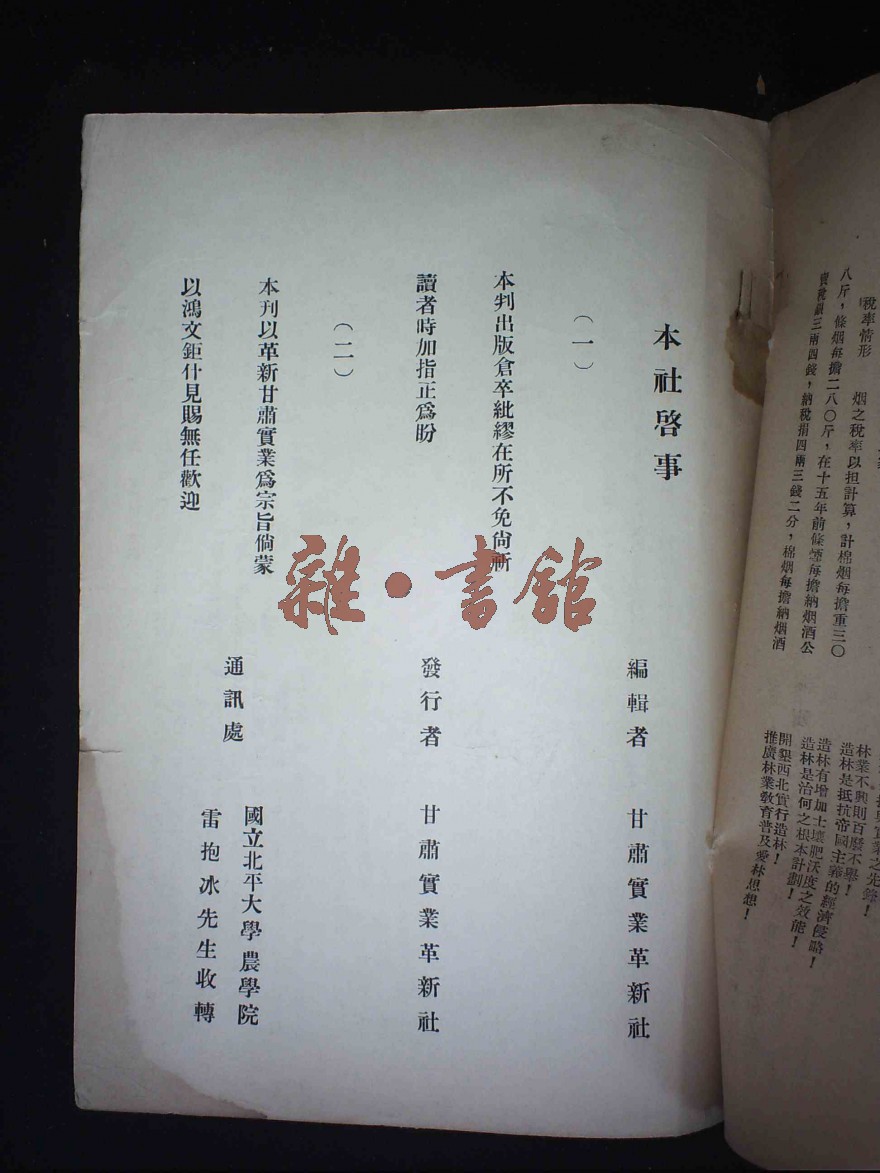 稅率情形　烟之稅率以担計算，計棉烟每擔重三〇
八斤，條烟每擔二八〇斤，在十五年前條煙每擔納烟酒公
賣稅銀三兩四錢，納稅捐四兩三錢二分，棉烟每擔納烟酒
林業不興則百廢不舉！
造林是抵抗帝國主義的經濟侵略！
造林有增加土壤肥沃度之效能！
造林是治何之根本計劃！
開墾西北實行造林！
推廣林業敎育普及愛林思想！
本社啓事
（一）
本判出版倉卒紕繆在所不免尙祈
讀者時加指正爲盼
（二）
本刊以革新甘肅實業爲宗旨倘蒙
以鴻文鉅什見賜無任歡迎
編輯者　甘肅實業革新社
發行者　甘肅實業革新社
通訊處　國立北平大學農學院
雷抱冰先生收轉
雜·書館